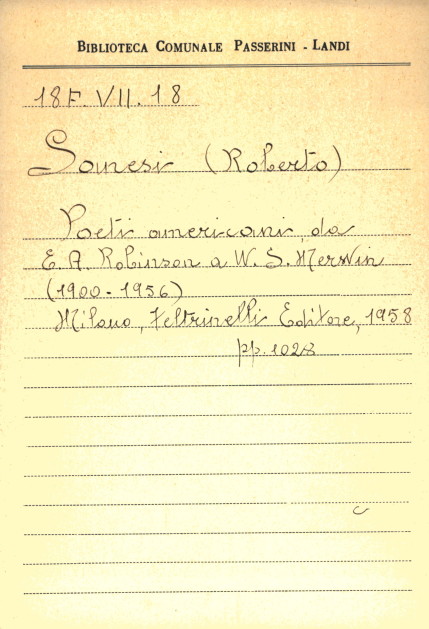 BIBLIOTECA COMUNALE PASSERINI - LANDI
18F. VII. 18
Sanesi (Roberto)
Poeti americani, da
E. A. Robinson a W. S. Merwin
(1900-1956)
Milano, Feltrinelli Editore, 1958
pp. 1028
c